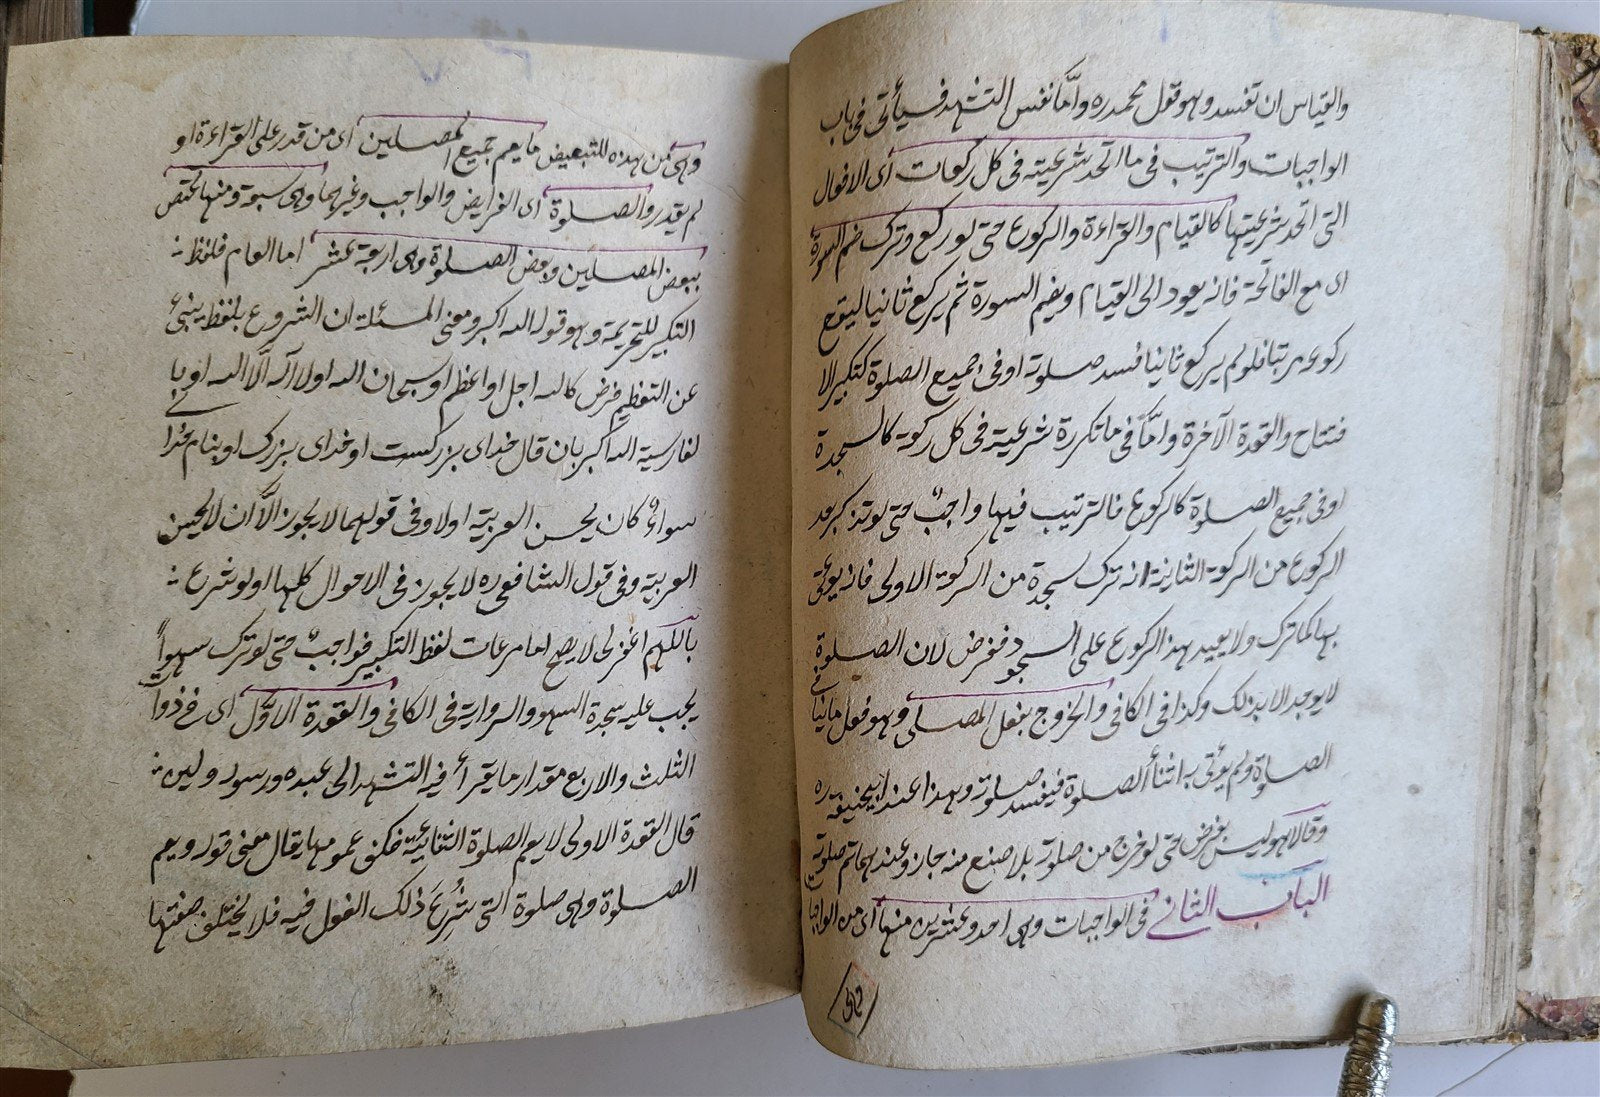 والقياس ان تفسد وهو قول محمد ره واما نفس التشهد فسيأتي في باب
الواجبات والترتيب في ما اتحد شرعيته في كل ركعات أي الافعال
التي اتحد شرعيتها كالقيام والقراءة والركوع حتى لو ركع وترك ضم السورة
اى مع الفاتحة فانه يعود الى القيام ويضم السورة ثم يركع ثانيا ليقع
ركوعه مرتبا فلو لم يركع ثانيا فسد صلوته او في جميع الصلوة كتكبير الا
فتتاح والقعدة الآخرة وامّا في ما تكررة شرعيته في كل ركعة كالسجدة
او في جميع الصلوة كالركوع فالترتيب فيها واجبٌ حتى لو تذكر بعد
الركوع من الركعة الثانية انه ترك سجدة من الركعة الاولى فانه يؤتى
بها كما ترك ولا يعيد هذا الركوع على السجود ففرض لان الصلوة
لا يوجد الا بذلك وكذا في الكافي والخروج بفعل المصلى وهو فعل ما ينافي
الصلوة ولم يؤتى به اثنأ الصلوة فيفسد صلوته وهذا عند ابيحنيفة ره
وقالا هو ليس بفرض حتى لو خرج من صلوته بلا صنع منه جاز وعندهما تم صلوته
الباب الثاني في الواجبات وهى احد وعشرين منها أى من الواجبا
وهى من هذه للتبعيض ما يعم جميع المصلين اى من قدر على القراءة او
لم يقدر والصلوة اى الفرايض والواجب وغيرهما وهى سبعة ومنها يختص
ببعض المصلين وبعض الصلوة وهى اربعة عشر اما العام فلفظ
التكبير للتحريمة وهو قوله الله اكبر ومعنى المسئلة ان الشروع بلفظ ينبئ
عن التعظيم فرض كالله اجل او اعظم او سبحان الله او لا اله الّا الله او با
لفارسية الله اكبر بان قال خداى بزركست او خداى بزرك او بنام خدا
سواءٌ كان يحسن العربية او لا وفى قولهما لا يجوز الّا ان لا يحسن
العربية وفى قول الشافعى ره لا يجوز فى الاحوال كلها ولو شرع
باللهم اغفر لى لا يصح اما مرعات لفظ التكبير فواجبٌ حتى لو ترك سهواً
يجب عليه سجدة السهو والرواية فى الكافى والقعدة الاوّل اى فى ذوات
الثلث والاربع مقدار ما يقرأ فيه التشهد الى عبده ورسوله ولين
قال القعدة الاولى لا يعم الصلوة الثنائية فكيف عمومها يقال معنى قوله ويعم
الصلوة وهى صلوة التى شُرِعَ ذلك الفعل فيه فلا يختلف صفتها